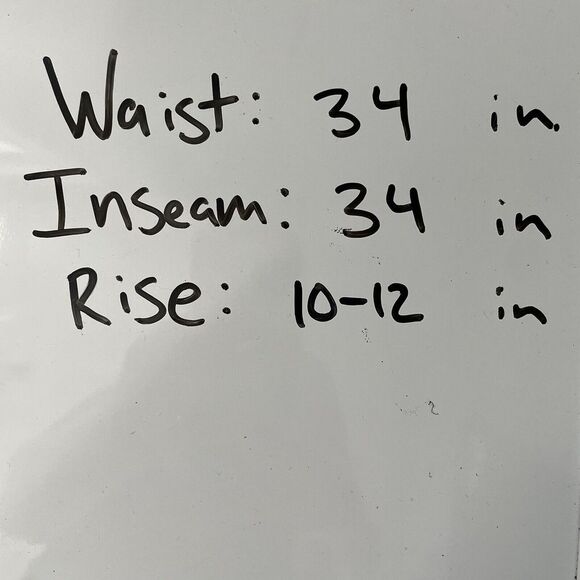 Waist: 34 in.
Inseam: 34 in
Rise: 10-12 in